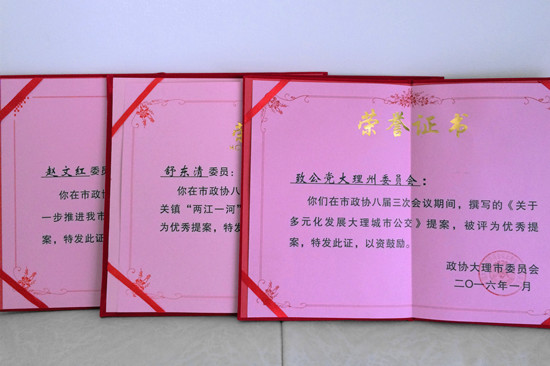 赵文红委
你在市政协
一步推进我市
案，特发此证
舒东清委员：
你在市政协八
关镇“两江一河”
为优秀提案，特发
荣誉证书
致公党大理州委员会：
你们在市政协八届三次会议期间，撰写的《关于
多元化发展大理城市公交》提案，被评为优秀提
案，特发此证，以资鼓励。
政协大理市委员会
二〇一六年一月